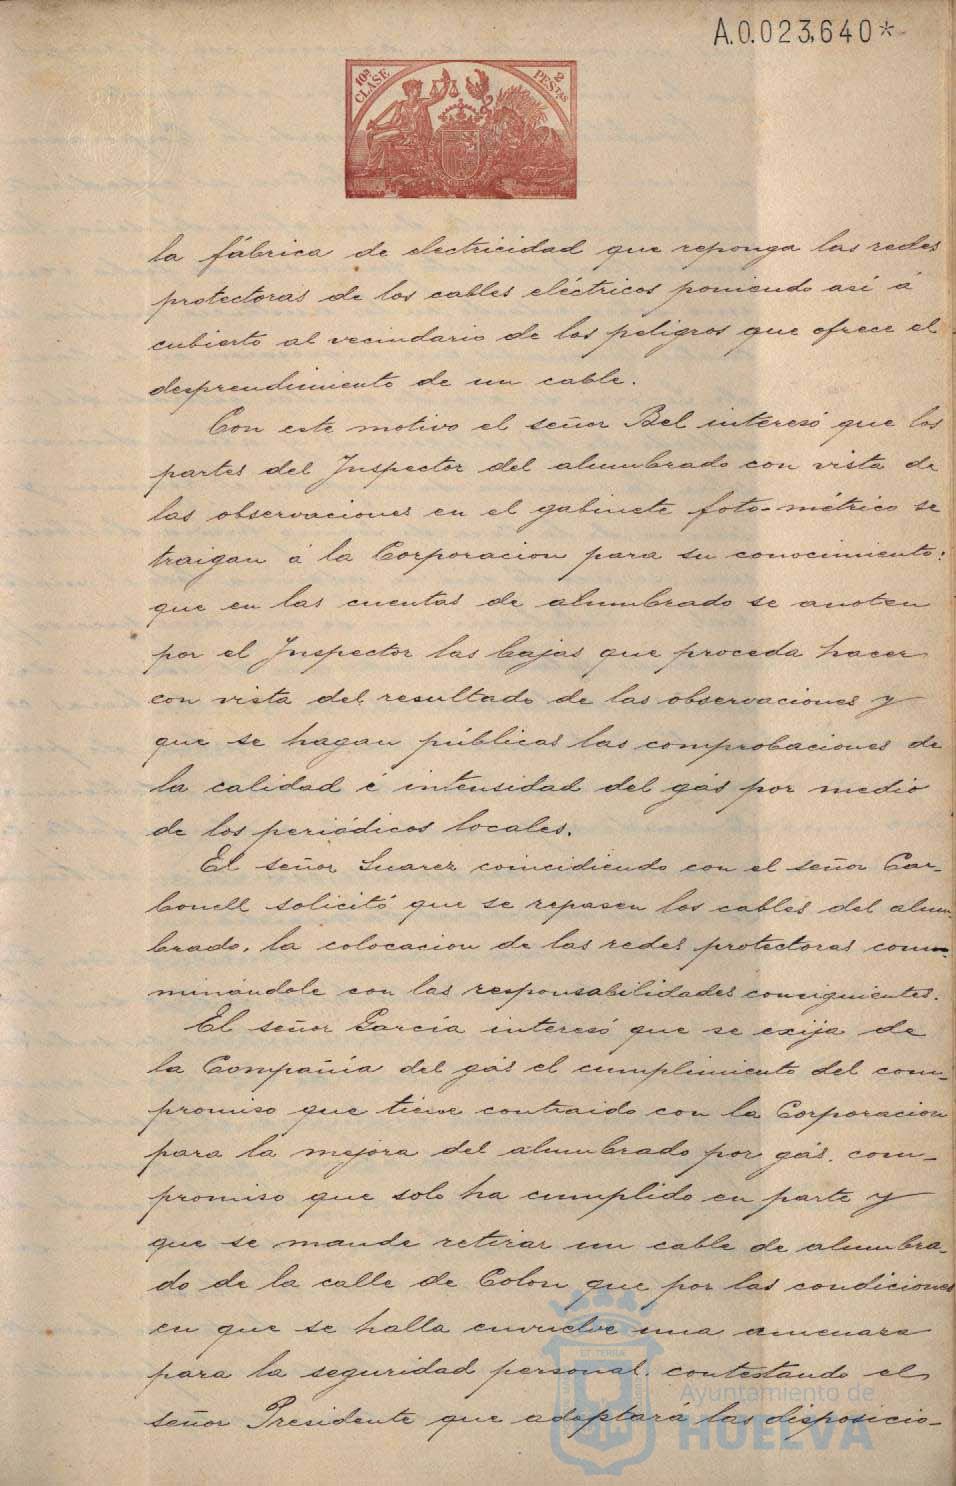 A.0.023,640*
10ª CLASE
2 PESTAS
la fábrica de electricidad que reponga las redes
protectoras de los cables eléctricos poniendo así á
cubierto al vecindario de los peligros que ofrece el
desprendimiento de un cable.
Con este motivo el señor Bel interesó que los
partes del Inspector del alumbrado con vista de
las observaciones en el gabinete foto-métrico se
traigan á la Corporacion para su conocimiento:
que en las cuentas de alumbrado se anoten
por el Inspector las bajas que proceda hacer
con vista del resultado de las observaciones y
que se hagan públicas las comprobaciones de
la calidad é intensidad del gás por medio
de los periódicos locales.
El señor Suarez coincidiendo con el señor Car-
bonell solicitó que se repasen los cables del alum-
brado, la colocacion de las redes protectoras conm-
minándole con las responsabilidades consiguientes.
El señor García interesó que se exija de
la Compañia del gás el cumplimiento del com-
promiso que tiene contraido con la Corporacion
para la mejora del alumbrado por gás, com-
promiso que solo ha cumplido en parte y
que se mande retirar un cable de alumbra-
do de la calle de Colon que por las condiciones
en que se halla envuelve una amenaza
para la seguridad personal, contestando el
señor Presidente que adoptará las disposicio-
Ayuntamiento de
HUELVA